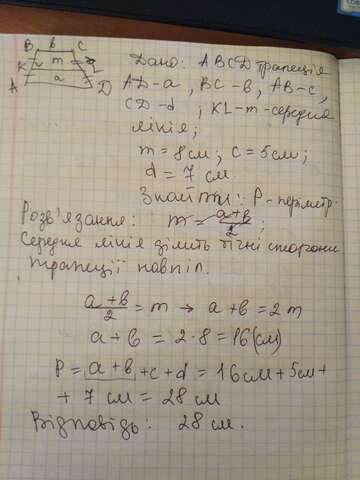 B b C
K m L
A a D
Дано: ABCD трапеція
AD-a, BC-b, AB-c,
CD-d; KL-m-середня
лінія;
m = 8см; c = 5см;
d = 7 см
Знайти: P-периметр.
Розв'язання: m = a+b/2;
Середня лінія ділить бічні сторони
трапеції навпіл.
a+b/2 = m → a+b = 2m
a+b = 2·8 = 16(см)
P = a+b+c+d = 16см+5см+
+ 7 см = 28 см
Відповідь: 28 см.